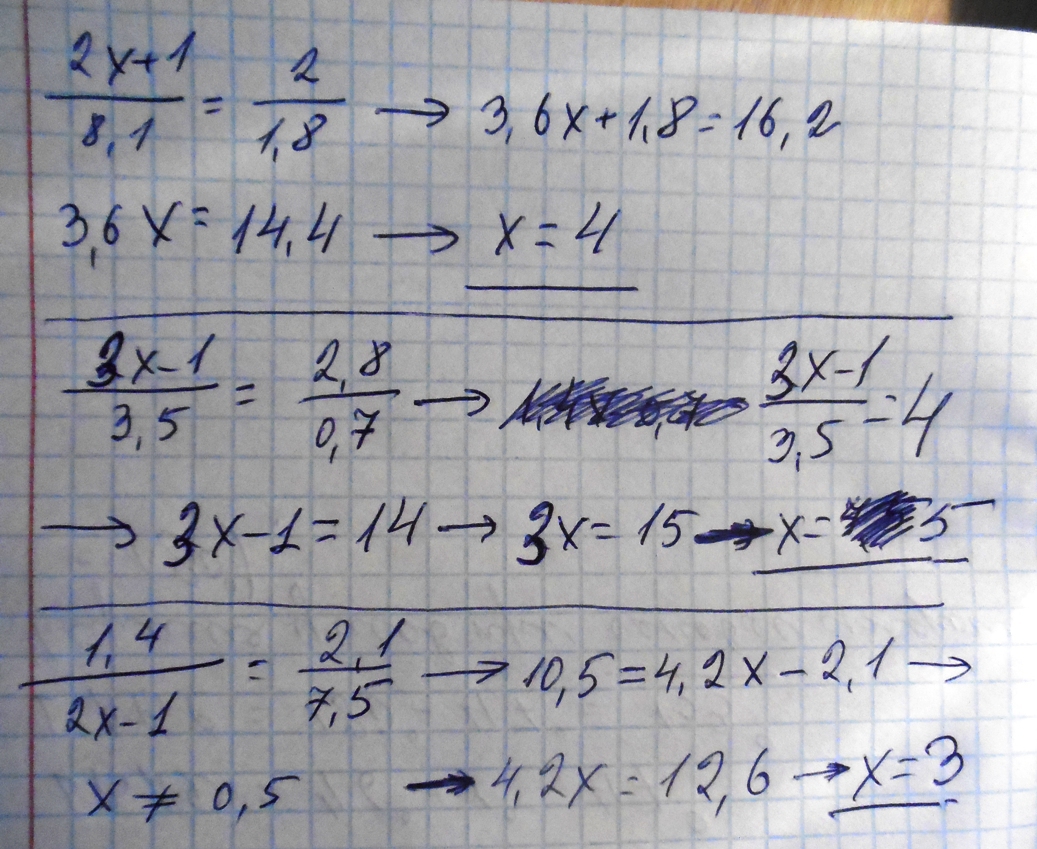 2x+1/8,1 = 2/1,8 → 3,6x+1,8=16,2
3,6x=14,4 → x=4
3x-1/3,5 = 2,8/0,7 → 3x-1/3,5=4
→ 3x-1=14 → 3x=15 → x=5
1,4/2x-1 = 2,1/7,5 → 10,5=4,2x-2,1 →
x≠0,5 → 4,2x=12,6 → x=3